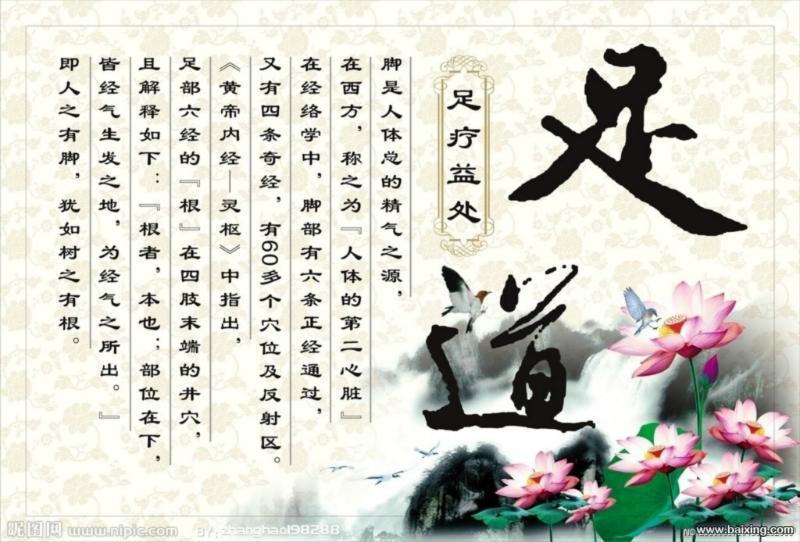 足道
足疗益处
脚是人体总的精气之源，
在西方，称之为『人体的第二心脏』
在经络学中，脚部有六条正经通过，
又有四条奇经，有60多个穴位及反射区。
《黄帝内经—灵枢》中指出，
足部六经的『根』在四肢末端的井穴，
且解释如下：『根者，本也；部位在下，
皆经气生发之地，为经气之所出。』
即人之有脚，犹如树之有根。
昵图网 www.nipic.com
BY:zhanghao198288
www.baixing.com